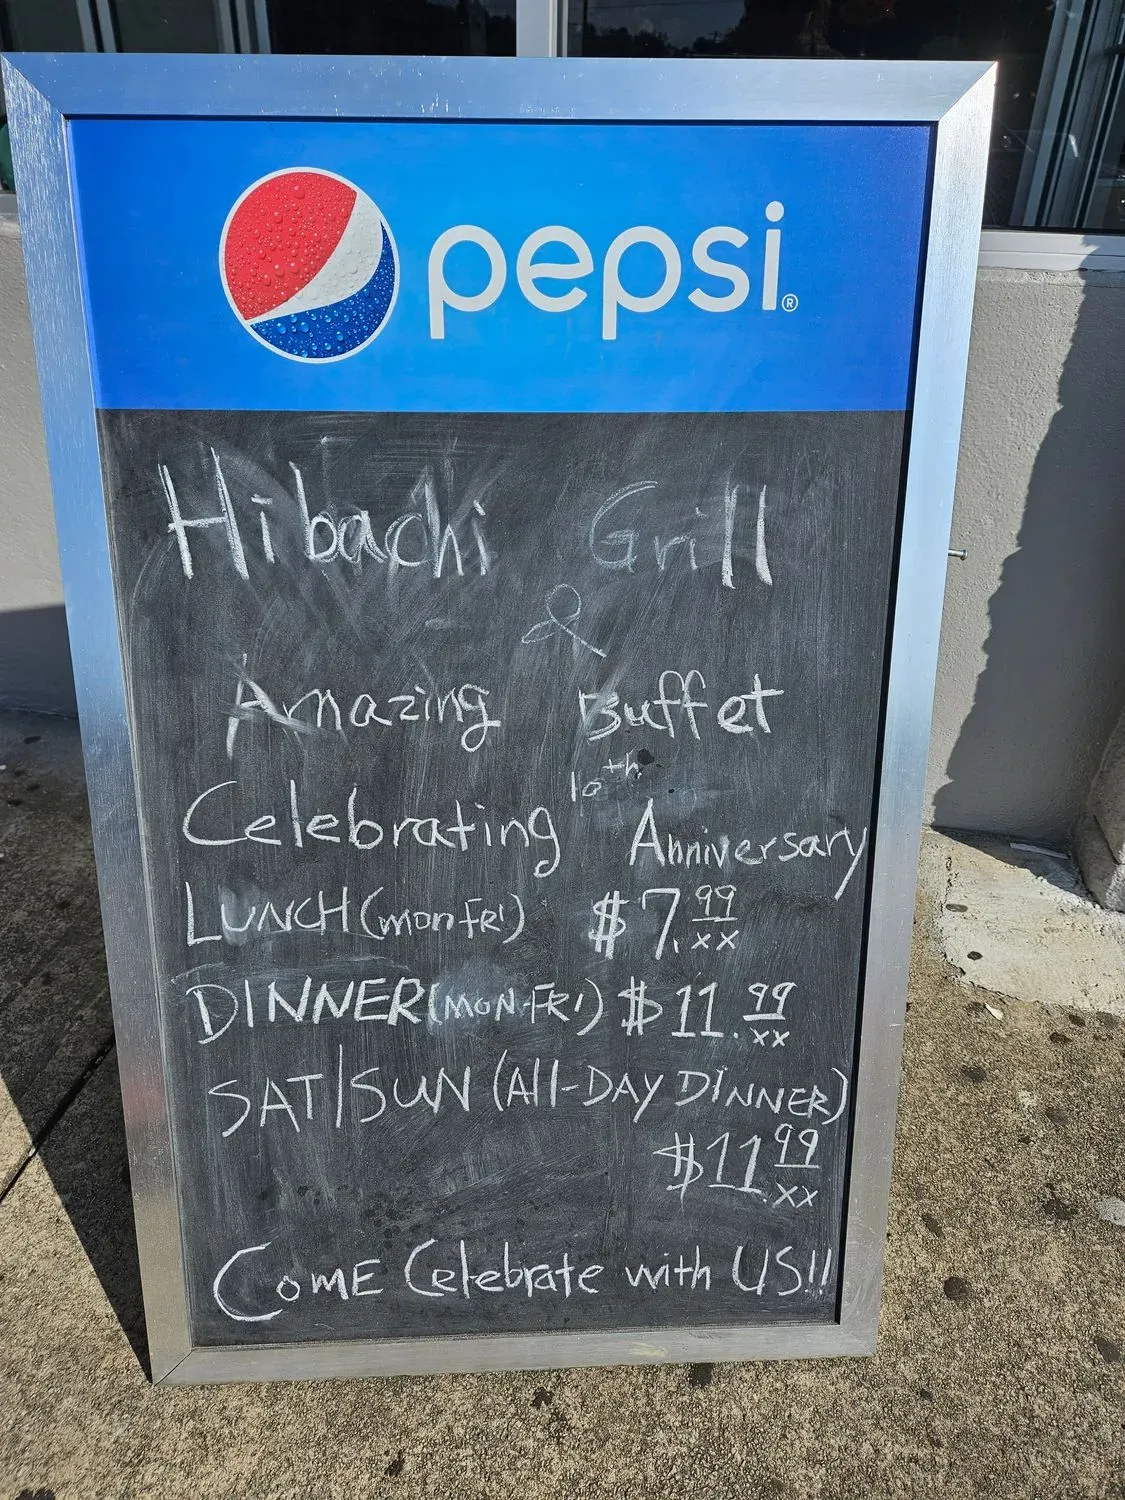 pepsi®
Hibachi Grill
&
Amazing Buffet
10th
Celebrating Anniversary
LUNCH (mon FRI) $7.99
xx
DINNER (MON-FRI) $11.99
xx
SAT/SUN (All-DAY DINNER)
$11.99
xx
COME Celebrate with US!!